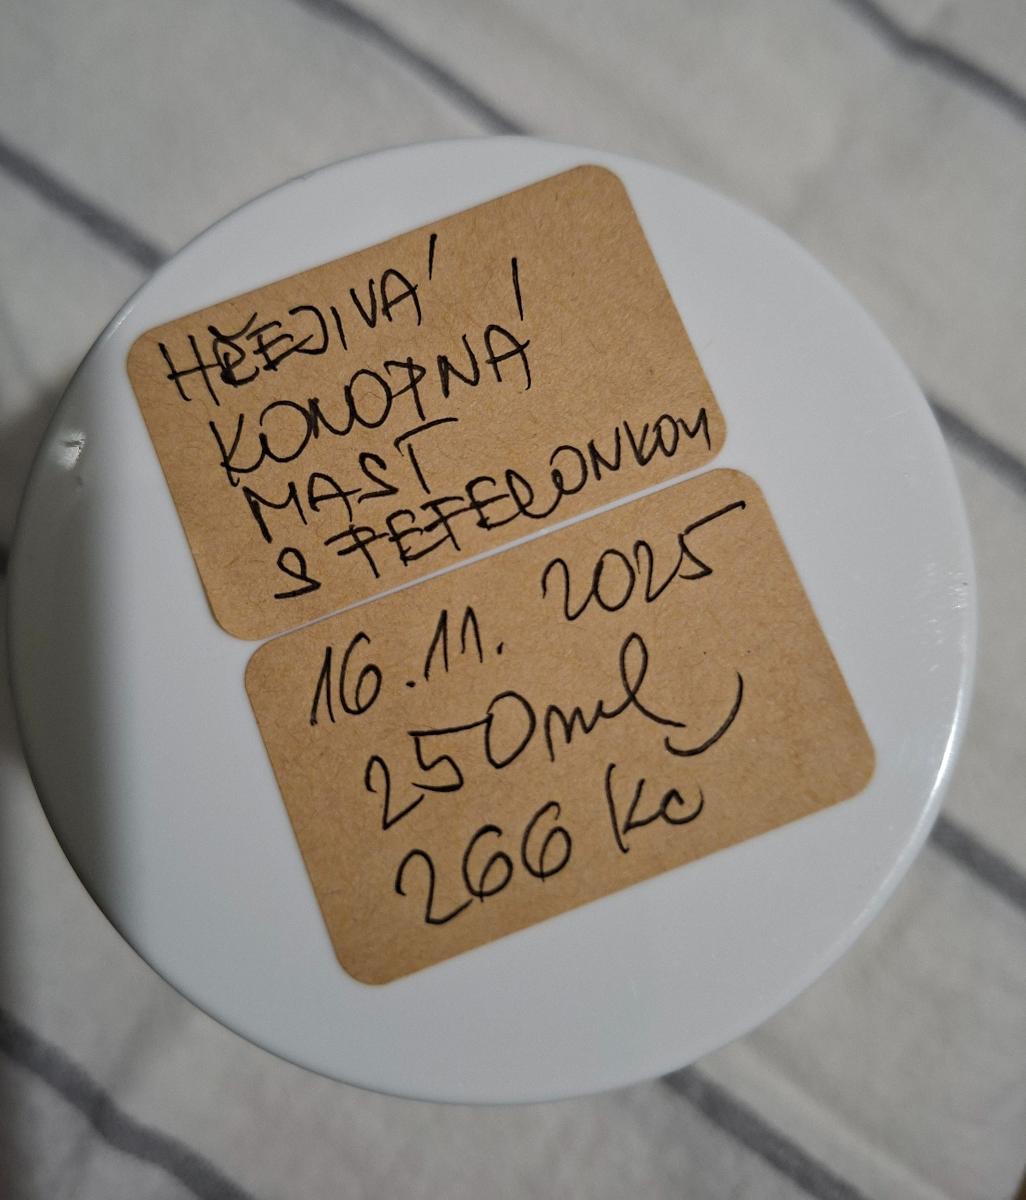 HŘEJIVÁ
KONOPNÁ
MAST
S FEFERONKOU
16.11. 2025
250ml
266 Kc